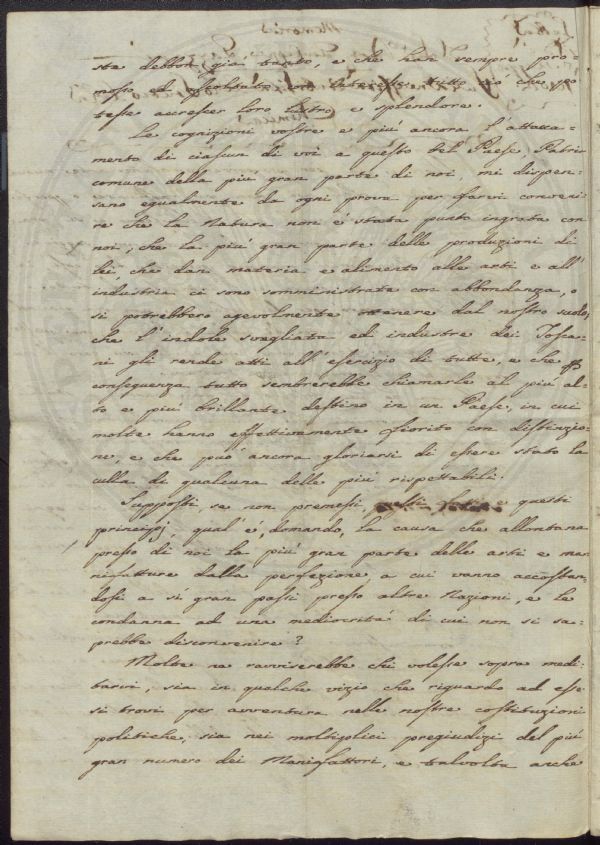 ste debbon già tanto, e che han sempre pro=
mosso ed ascoltato con interesse tutto ciò che po
tesse accrescer loro lustro e splendore.
Le cognizioni vostre e più ancora l'attacca=
mento di ciascun di voi a questo bel Paese Patria
comune della più gran parte di noi, mi dispen=
sano egualmente da ogni prova per farvi conveni
re che la Natura non è stata punto ingrata con
noi, che la più gran parte delle produzioni di
lei, che dan materia e alimento alle arti e all'
industria ci sono somministrate con abbondanza, o
si potrebbero agevolmente ottenere dal nostro suolo,
che l'indole svegliata ed industre dei Tosca=
ni gli rende atti all'esercizio di tutte, e che
conseguenza tutto sembrerebbe chiamarle al più al=
to e più brillante destino in un Paese, in cui
molte hanno effettivamente fiorito con distinzio=
ne, e che può ancora gloriarsi di essere stato la
culla di qualcuna delle più rispettabili.
Supposti, se non premessi questi
principj, qual'è, domando, la causa che allontana
presso di noi la più gran parte delle arti e ma=
nifatture dalla perfezione, a cui vanno accostan=
dosi a sì gran passi presso altre Nazioni, e le
condanna ad una mediocrità di cui non si sa=
prebbe disconvenire?
Molte ne ravviserebbe chi volesse sopra medi=
tarvi, sia in qualche vizio che riguardo ad esse
si trovi per avventura nelle nostre costituzioni
politiche, sia nei moltiplici pregiudizi del più
gran numero dei Manifattori, e talvolta anche